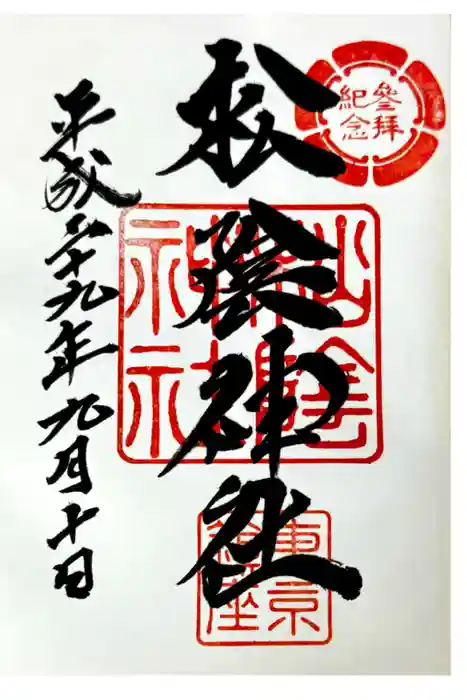 參拝
紀念
松陰神社
松陰
神社
東京
平成二十九年九月十日